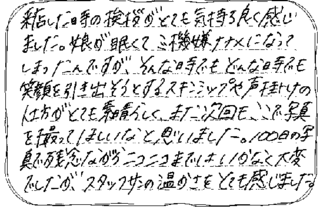 来店した時の挨拶がとても気持ち良く感じ
ました。娘が眠くてご機嫌ナナメになって
しまったんですが、そんな時でもどんな時でも
笑顔を引き出そうとするスキンシップや声掛けの
仕方がとても素晴らしく、また次回も、ここで写真
を撮ってほしいなと思いました。100日の写
真で残念ながらニコニコまではいかなく大変
でしたが、スタッフサンの温かさをとても感じました。